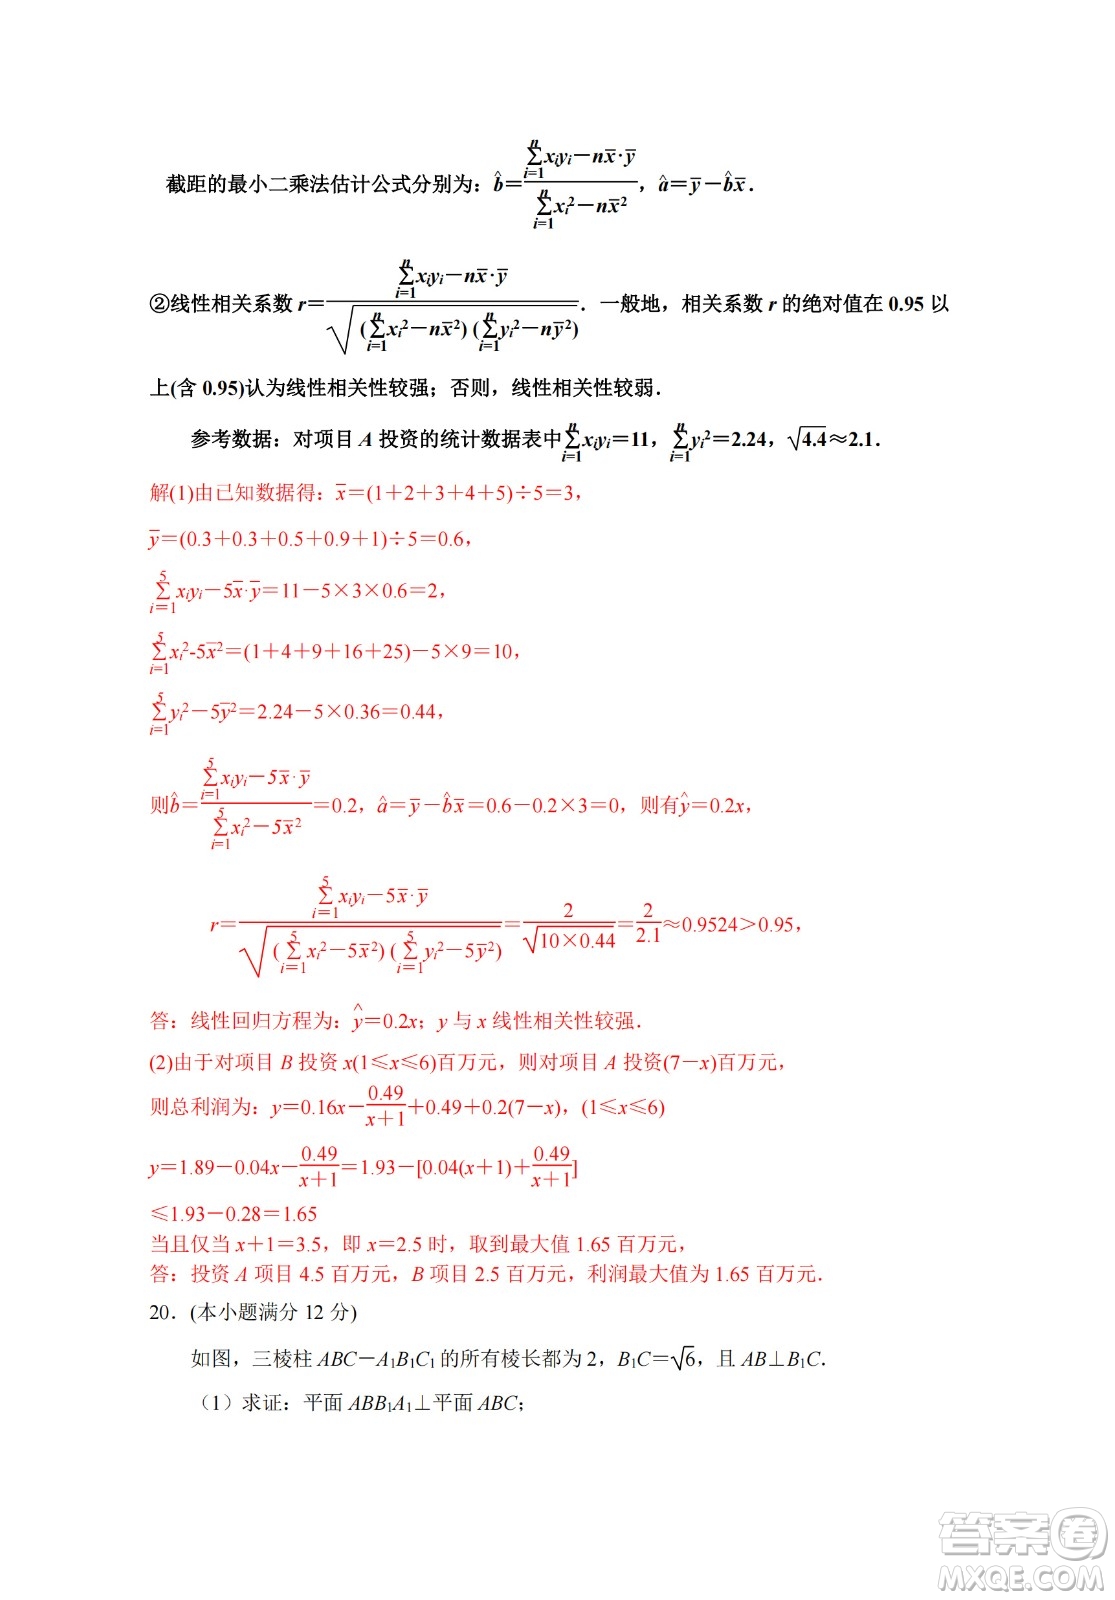 截距的最小二乘法估计公式分别为：b̂＝(∑ⁿᵢ₌₁xᵢyᵢ－nx̄·ȳ)/(∑ⁿᵢ₌₁xᵢ²－nx̄²)，â＝ȳ－b̂x̄．
②线性相关系数 r＝(∑ⁿᵢ₌₁xᵢyᵢ－nx̄·ȳ)/√((∑ⁿᵢ₌₁xᵢ²－nx̄²)(∑ⁿᵢ₌₁yᵢ²－nȳ²))．一般地，相关系数 r 的绝对值在 0.95 以
上(含 0.95)认为线性相关性较强；否则，线性相关性较弱．
参考数据：对项目 A 投资的统计数据表中∑ⁿᵢ₌₁xᵢyᵢ＝11，∑ⁿᵢ₌₁yᵢ²＝2.24，√4.4≈2.1．
解(1)由已知数据得：x̄＝(1＋2＋3＋4＋5)÷5＝3，
ȳ＝(0.3＋0.3＋0.5＋0.9＋1)÷5＝0.6，
∑⁵ᵢ₌₁xᵢyᵢ－5x̄·ȳ＝11－5×3×0.6＝2，
∑⁵ᵢ₌₁xᵢ²-5x̄²＝(1＋4＋9＋16＋25)－5×9＝10，
∑⁵ᵢ₌₁yᵢ²－5ȳ²＝2.24－5×0.36＝0.44，
则b̂＝(∑⁵ᵢ₌₁xᵢyᵢ－5x̄·ȳ)/(∑⁵ᵢ₌₁xᵢ²－5x̄²)＝0.2，â＝ȳ－b̂x̄＝0.6－0.2×3＝0，则有ŷ＝0.2x，
r＝(∑⁵ᵢ₌₁xᵢyᵢ－5x̄·ȳ)/√((∑⁵ᵢ₌₁xᵢ²－5x̄²)(∑⁵ᵢ₌₁yᵢ²－5ȳ²))＝2/√(10×0.44)＝2/2.1≈0.9524＞0.95，
答：线性回归方程为：ŷ＝0.2x；y 与 x 线性相关性较强．
(2)由于对项目 B 投资 x(1≤x≤6)百万元，则对项目 A 投资(7－x)百万元，
则总利润为：y＝0.16x－0.49/(x＋1)＋0.49＋0.2(7－x)，(1≤x≤6)
y＝1.89－0.04x－0.49/(x＋1)＝1.93－[0.04(x＋1)＋0.49/(x＋1)]
≤1.93－0.28＝1.65
当且仅当 x＋1＝3.5，即 x＝2.5 时，取到最大值 1.65 百万元，
答：投资 A 项目 4.5 百万元，B 项目 2.5 百万元，利润最大值为 1.65 百万元．
20．(本小题满分 12 分)
如图，三棱柱 ABC－A₁B₁C₁的所有棱长都为 2，B₁C＝√6，且 AB⊥B₁C．
（1）求证：平面 ABB₁A₁⊥平面 ABC；
答案圈
MXQE.COM